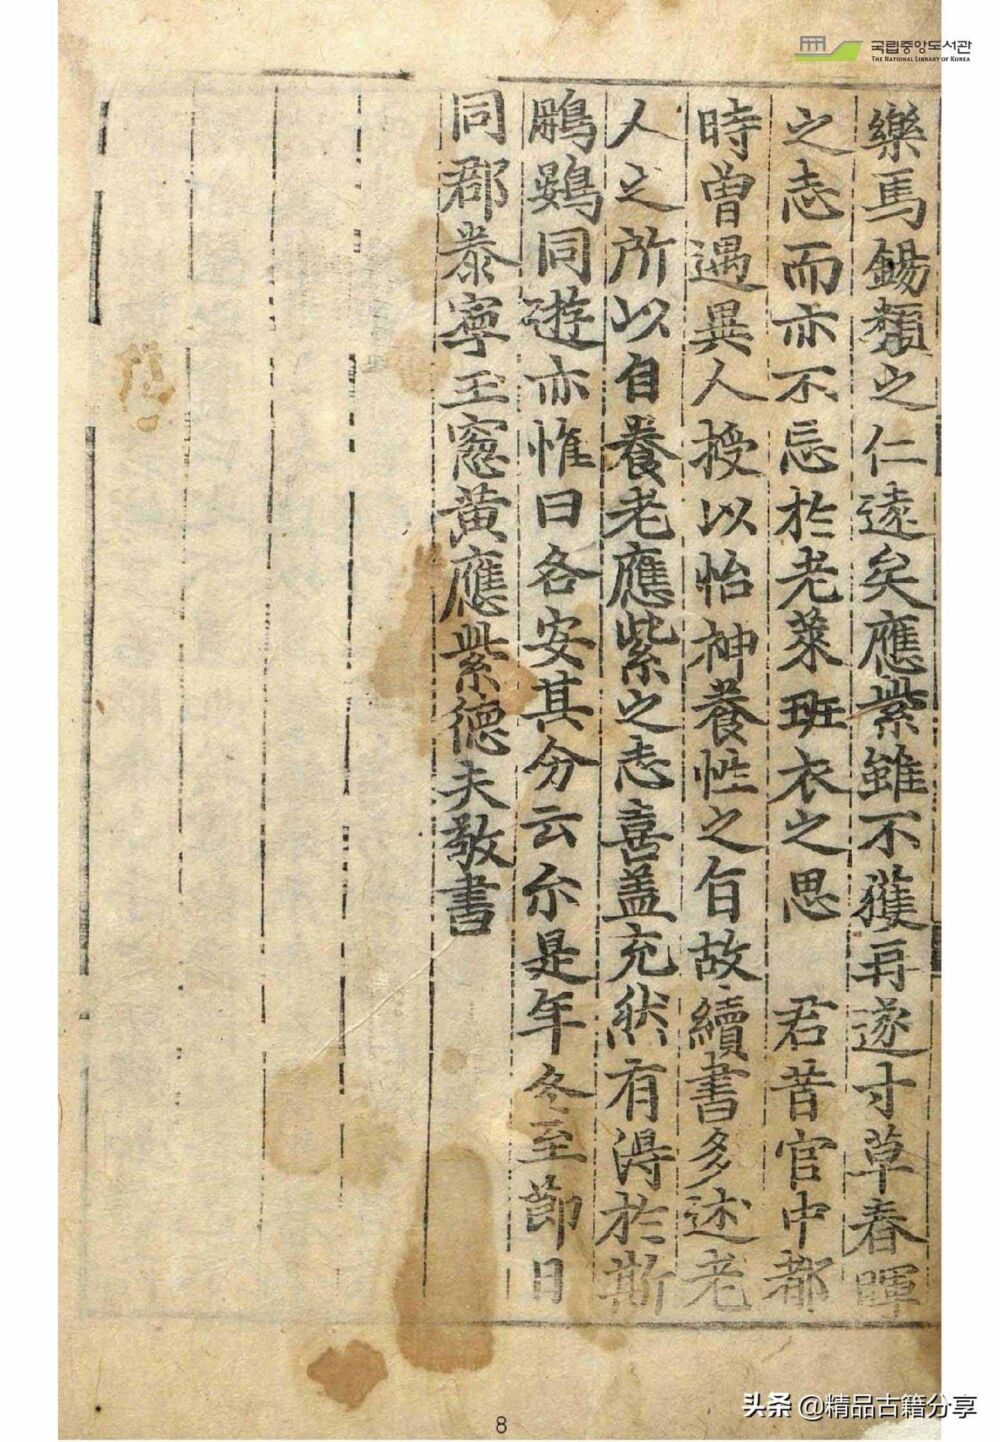 국립중앙도서관
THE NATIONAL LIBRARY OF KOREA
樂焉錫類之仁遠矣應紫雖不獲再遂寸草春暉
之志而亦不忘於老萊班衣之思　君昔官中都
時曾遇異人授以怡神養性之旨故續書多述老
人之所以自養老應紫之志喜盖充然有得於斯
鵬鷃同遊亦惟曰各安其分云尒是年冬至節日
同郡泰寧玉窓黄應紫德夫敬書
8
头条 @精品古籍分享